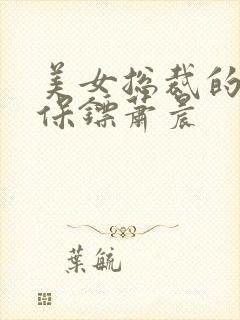 美女总裁的
保镖萧晨
葉毓